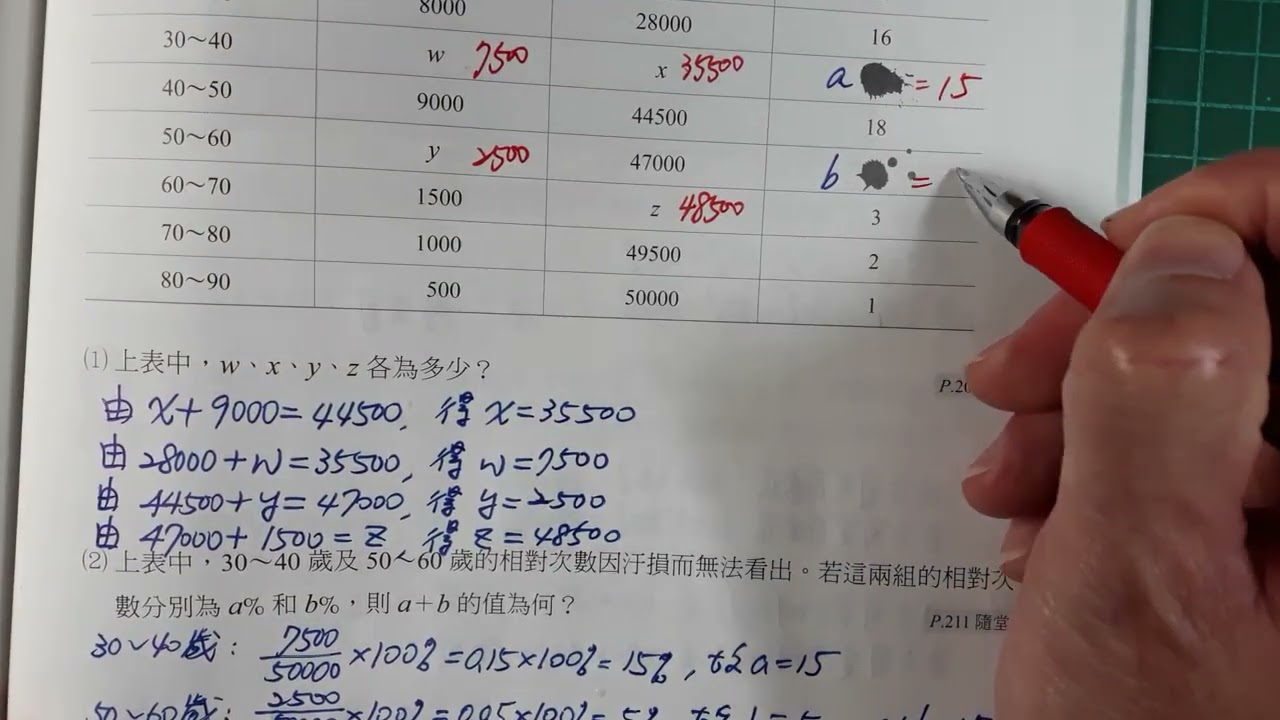 8000 28000 16
30～40 w 7500 x 35500 a = 15
40～50 9000 44500 18
50～60 y 2500 47000 b =
60～70 1500 z 48500 3
70～80 1000 49500 2
80～90 500 50000 1
⑴ 上表中，w、x、y、z 各為多少？
由 x+9000=44500, 得 x=35500
由 28000+w=35500, 得 w=7500
由 44500+y=47000, 得 y=2500
由 47000+1500=z 得 z=48500
⑵ 上表中，30～40 歲及 50～60 歲的相對次數因汙損而無法看出。若這兩組的相對次
數分別為 a% 和 b%，則 a+b 的值為何？
P.211 隨堂
30~40歲： 7500/50000 ×100%=0.15×100%=15%, 故 a=15
50~60歲： 2500 ×100%=0.05×100%=5%